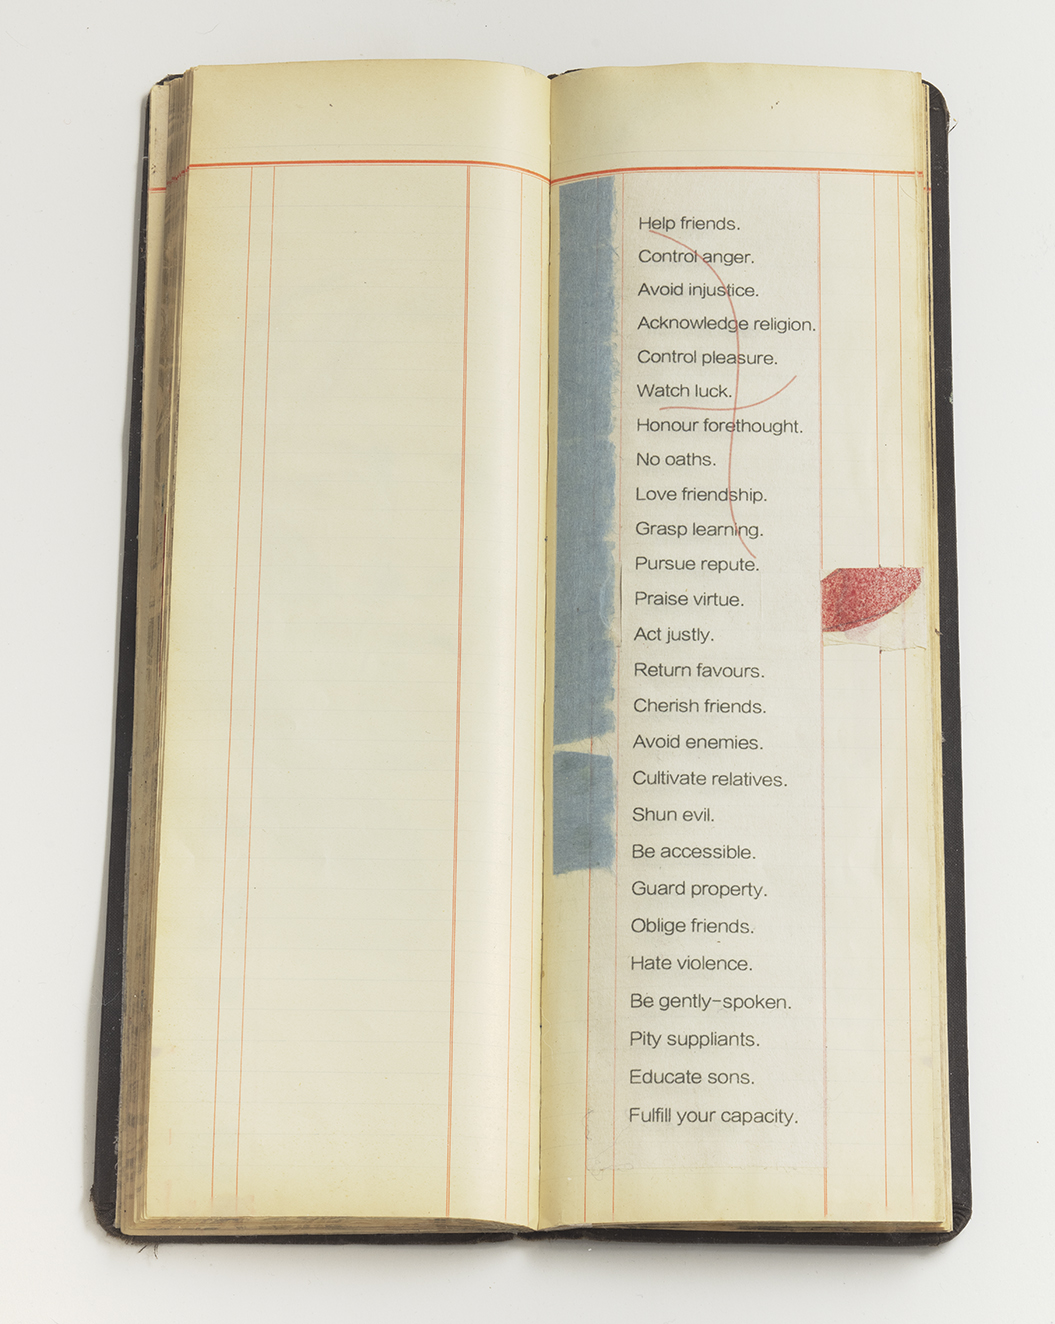 Help friends.
Control anger.
Avoid injustice.
Acknowledge religion.
Control pleasure.
Watch luck.
Honour forethought.
No oaths.
Love friendship.
Grasp learning.
Pursue repute.
Praise virtue.
Act justly.
Return favours.
Cherish friends.
Avoid enemies.
Cultivate relatives.
Shun evil.
Be accessible.
Guard property.
Oblige friends.
Hate violence.
Be gently-spoken.
Pity suppliants.
Educate sons.
Fulfill your capacity.